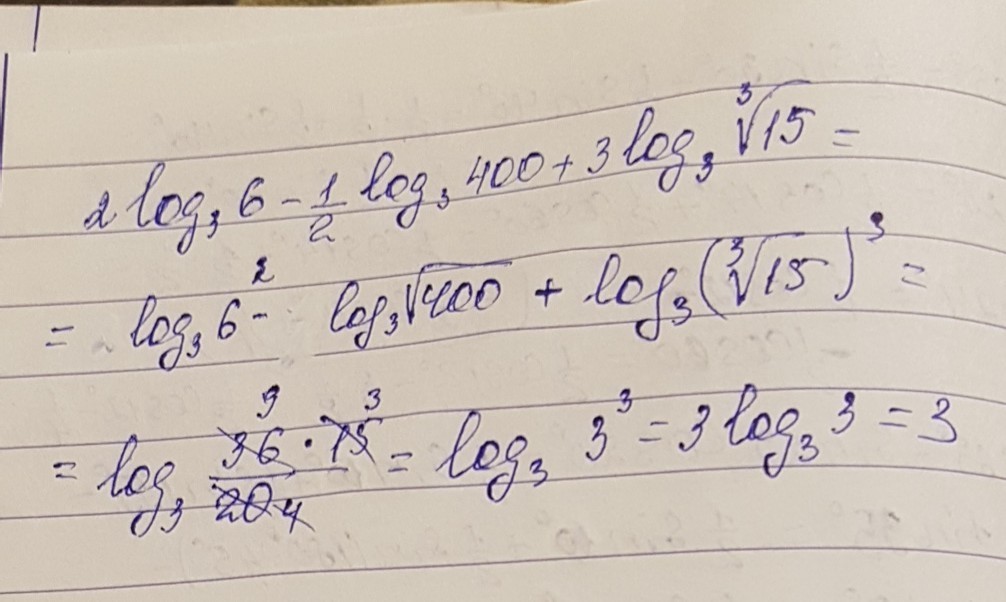 2 log₃ 6 - 1/2 log₃ 400 + 3 log₃ ∛15 =
= log₃ 6² - log₃ √400 + log₃ (∛15)³ =
= log₃ (36 9 · 15 3)/(20 4) = log₃ 3³ = 3 log₃ 3 = 3